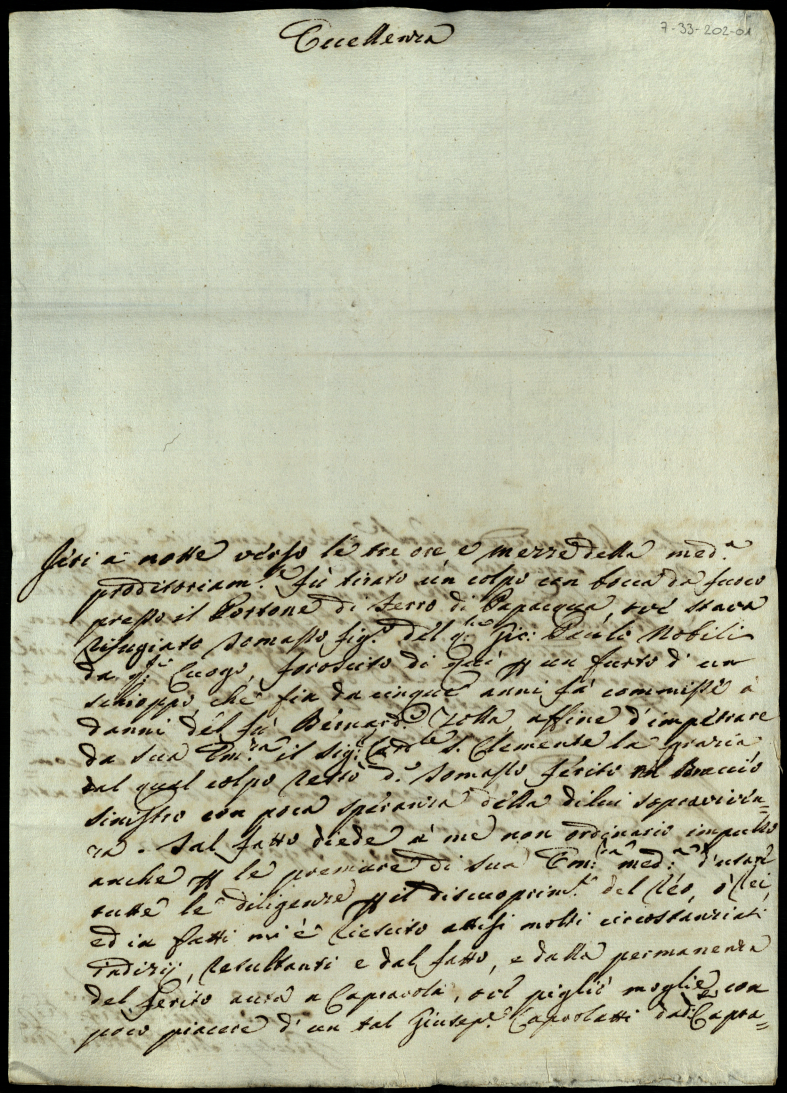 7-33-202-01
Eccellenza
Jeri à notte verso le tre ore e mezze della med.ª
proditoriam.te fù tirato un colpo con bocca da fuoco
presso il Portone di ferro di Papacqua, ove stava
rifugiato Tomasso fig.º del q.m Gio: Paulo Nobili
da q.to luogo, foroscito di quì per un furto d'un
schioppo, che fin da cinque anni fà commisse à
danni del fù Bernard.º Zolla affine d'impetrare
da sua Em.za il sig.r Card.le S. Clemente la grazia,
dal qual colpo restò d.º Tomasso ferito nel Braccio
sinistro con poca speranza della dilui sopraviven=
za. Tal fatto diede à me non ordinario impulso
anche per le premure di sua Em.za med.ª d'usare
tutte le diligenze per il discuoprim.to del Reo, ò Rei,
ed in fatti mi è riescito attesi molti circostanziati
Indizij, resultanti e dal fatto, e dalla permanenza
del ferito avea a Capracola, ove pigliò moglie con
poco piacere d'un tal Giusep.e Caprolatti da d.ª Capra=